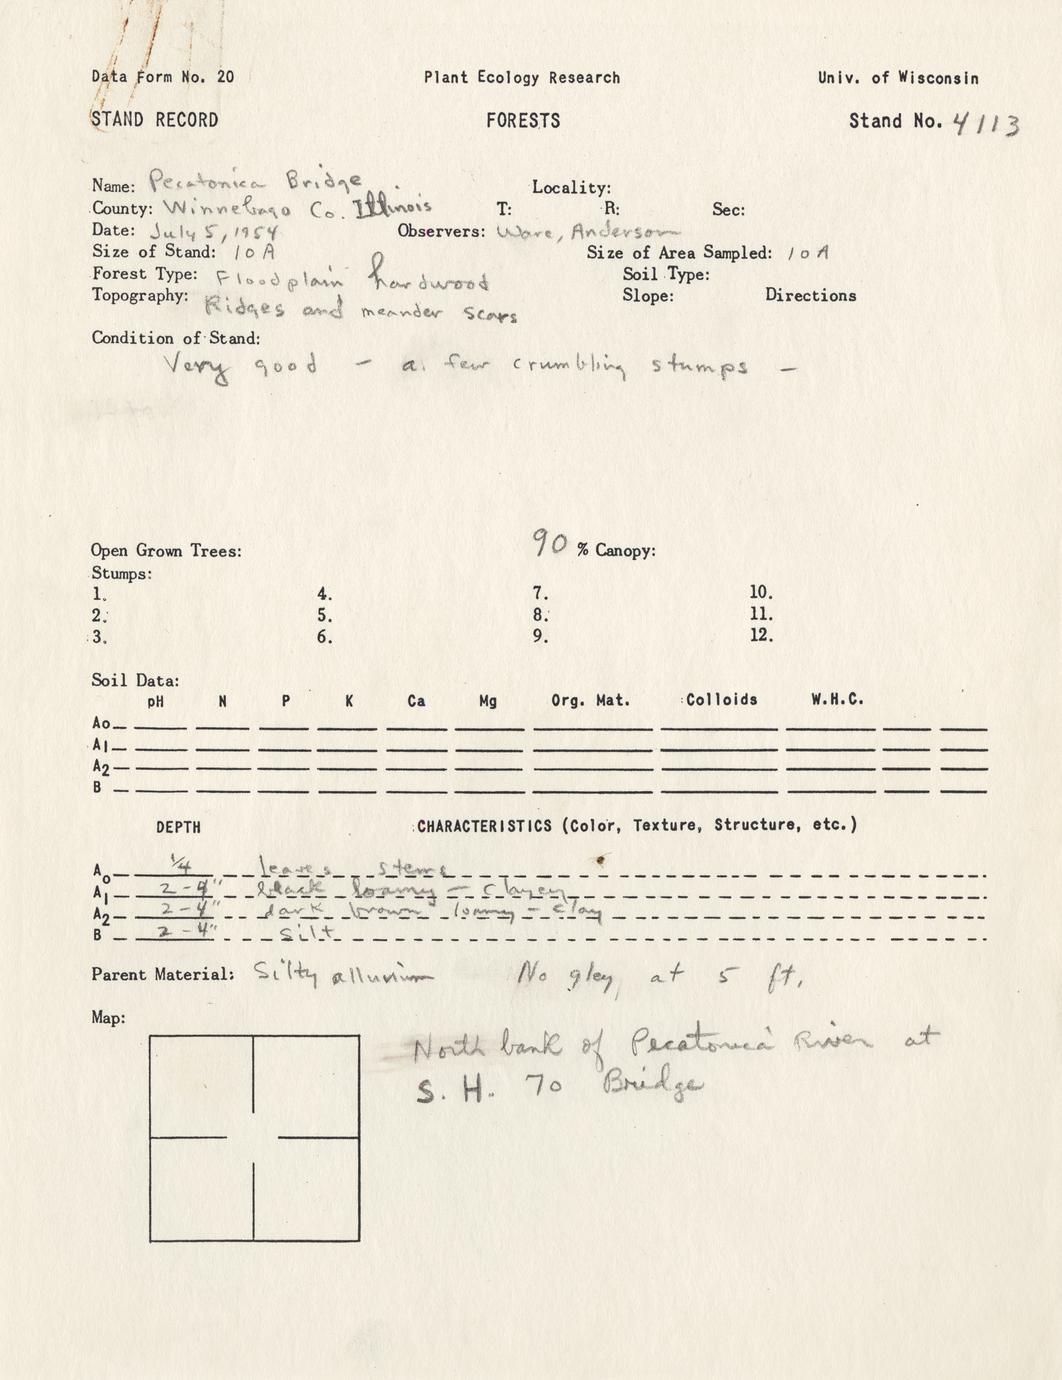 Data Form No. 20 Plant Ecology Research Univ. of Wisconsin
STAND RECORD FORESTS Stand No. 4113
Name: Pecatonica Bridge Locality:
County: Winnebago Co. Illinois T: R: Sec:
Date: July 5, 1954 Observers: Ware, Anderson
Size of Stand: 10 A Size of Area Sampled: 10 A
Forest Type: Floodplain hardwood Soil Type:
Topography: Ridges and meander scars Slope: Directions
Condition of Stand:
Very good - a few crumbling stumps -
Open Grown Trees: 90 % Canopy:
Stumps:
1. 4. 7. 10.
2. 5. 8. 11.
3. 6. 9. 12.
Soil Data:
pH N P K Ca Mg Org. Mat. Colloids W.H.C.
Ao
A1
A2
B
DEPTH CHARACTERISTICS (Color, Texture, Structure, etc.)
Ao 1/4 leaves stems
A1 2-4" black loamy - clayey
A2 2-4" dark brown loamy - clay
B 2-4" silt
Parent Material: Silty alluvium No gley at 5 ft.
Map:
North bank of Pecatonica River at
S. H. 70 Bridge